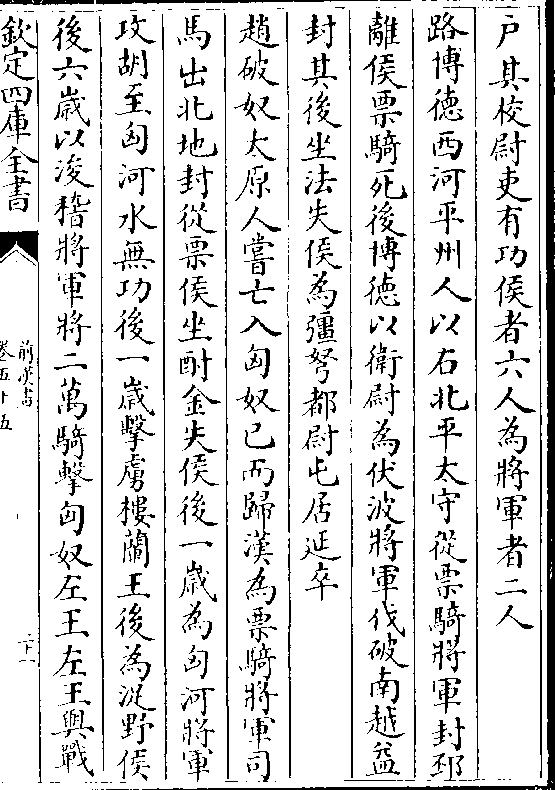 戸其校尉吏有功侯者六人為將軍者二人
路博德西河平州人以右北平太守從票騎將軍封邳
離侯票騎死後博德以衛尉為伏波將軍伐破南越益
封其後坐法失侯為彊弩都尉屯居延卒
趙破奴太原人嘗亡入匈奴已而歸漢為票騎將軍司
馬出北地封從票侯坐酎金失侯後一歳為匈河將軍
攻胡至匈河水無功後一歳擊虜樓蘭王後為浞野侯
後六歳以浚稽將軍將二萬騎擊匈奴左王左王與戰
欽定四庫全書
前漢書
卷五十五